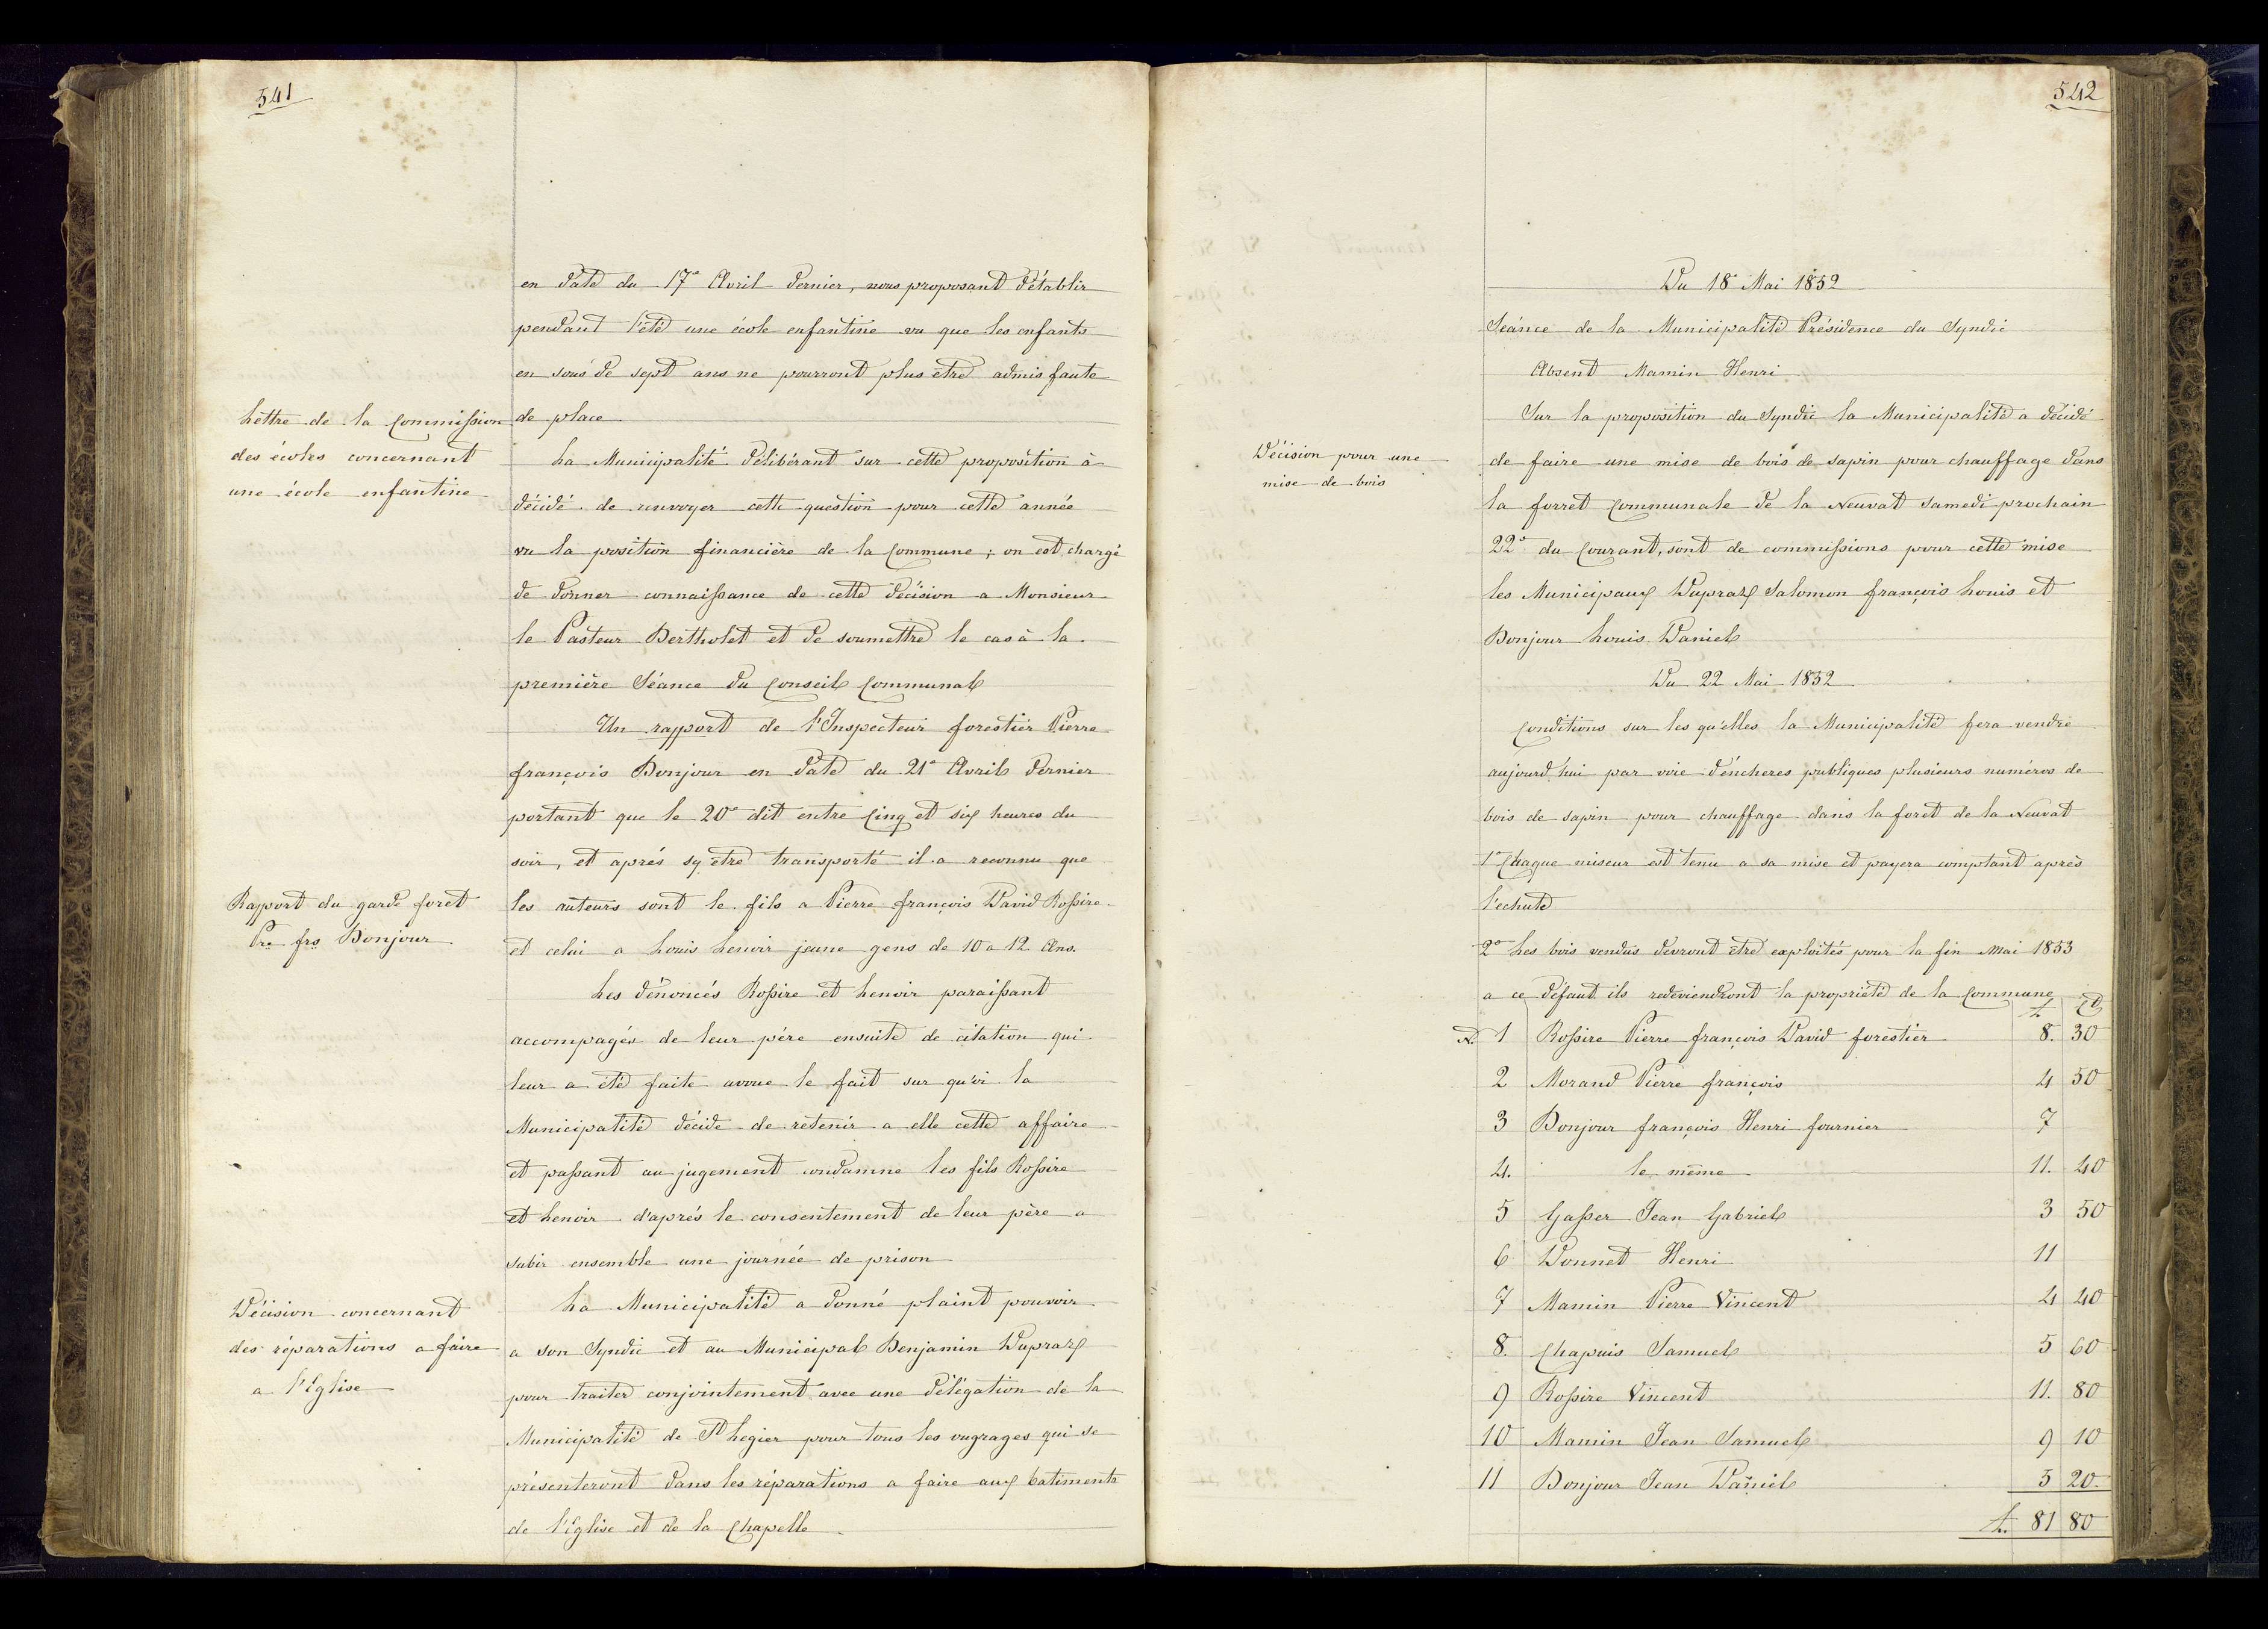 541
en date du 17e Avril dernier, nous proposant d'établir
pendant l'été une école enfantine vu que les enfants
en sous de sept ans ne pourront plus être admis faute
de place
Lettre de la Commission
des écoles concernant
une école enfantine
La Municipalité délibérant sur cette proposition à
décidé de renvoyer cette question pour cette année
vu la position financière de la Commune ; on est chargé
de donner connaissance de cette décision a Monsieur
le Pasteur Bertholet et de soumettre le cas à la
première Séance du Conseil Communal
Un rapport de l'Inspecteur forestier Pierre
françois Bonjour en date du 21e Avril dernier
portant que le 20e dit entre Cinq et six heures du
soir, et aprés sy être transporté il a reconnu que
Rapport du garde foret
Pre frs Bonjour
les auteurs sont le fils a Pierre françois David Rossire
et celui a Louis Lenoir jeune gens de 10 a 12 Ans.
Les dénoncés Rossire et Lenoir paraissant
accompagés de leur père ensuite de citation qui
leur a été faite avoue le fait sur qu'oi la
Municipalité décide de retenir a elle cette affaire
et passant au jugement condamne les fils Rossire
et Lenoir d'aprés le consentement de leur père a
subir ensemble une journée de prison
Décision concernant
des réparations a faire
a l'Eglise
La Municipalité a donné plaint pouvoir
a son Syndic et au Municipal Benjamin Dupraz
pour traiter conjointement avec une délégation de la
Municipalité de St Legier pour tous les ougrages qui se
présenteront dans les réparations a faire aux batiments
de l'Eglise et de la Chapelle
542
Du 18e Mai 1852
Séance de la Municipalité Présidence du Syndic
Absent Mamin Henri
Décision pour une
mise de bois
Sur la proposition du Syndic la Municipalité a décidé
de faire une mise de bois de sapin pour chauffage dans
la forret Communale de la Neuvat samedi prochain
22e du Courant, sont de commissions pour cette mise
les Municipaux Dupraz Salomon françois Louis et
Bonjour Louis Daniel
Du 22 Mai 1852
Conditions sur les qu'elles la Municipalité fera vendre
aujourd'hui par voie d'éncheres publiques plusieurs numéros de
bois de sapin pour chauffage dans la foret de la Neuvat
1o Chaque miseur est tenu a sa mise et payera comptant après
l'echute
2o Les bois vendus devront être exploités pour la fin Mai 1853
a ce défaut ils redeviendront la propriété de la Commune
f. Ct
N. 1 Rossire Pierre françois David forestier 8. 30
2 Morand Pierre françois 4 50
3 Bonjour françois Henri fournier 7
4. le même 11. 40
5 Gasser Jean Gabriel 3 50
6 Donnet Henri 11
7 Mamin Pierre Vincent 4 40
8. Chapuis Samuel 5 60
9 Rossire Vincent 11. 80
10 Mamin Jean Samuel 9 10
11 Bonjour Jean Daniel 5 20
f. 81 80